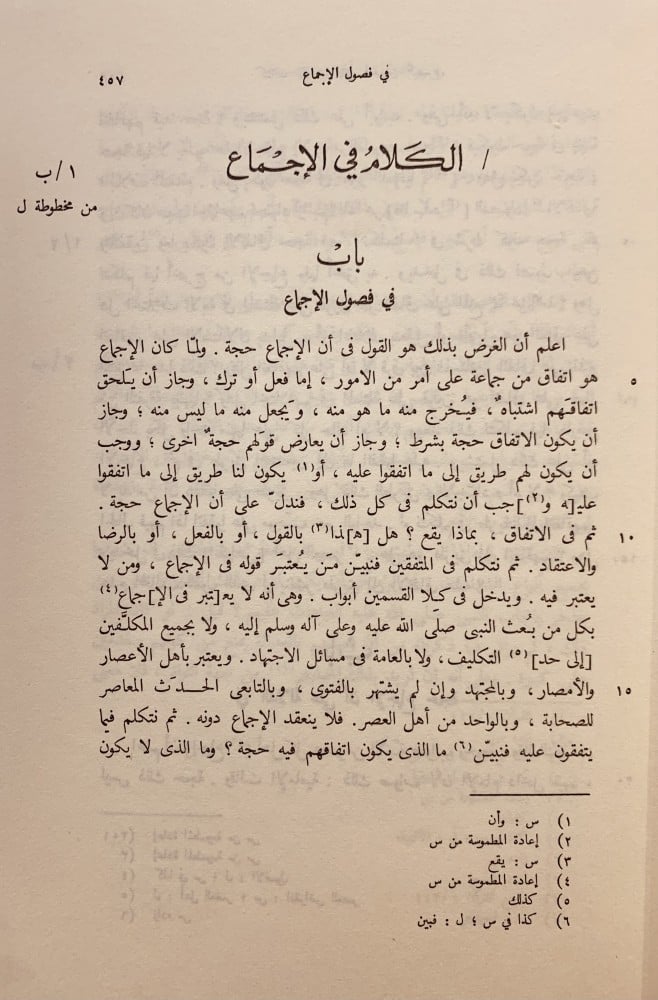 في فصول الإجماع ٤٥٧
/ الكَلَامُ في الإجْمَاع
١ / ب
من مخطوطة ل
بابْ
في فصول الإجماع
اعلم أن الغرض بذلك هو القول فى أن الإجماع حجة . ولمّا كان الإجماع
هو اتفاق من جماعة على أمر من الامور ، إما فعل أو ترك ، وجاز أن يَلحق ٥
اتفاقَهم اشتباهٌ ، فيُخرج منه ما هو منه ، ويَجعل منه ما ليس منه ؛ وجاز
أن يكون الاتفاق حجة بشرط ؛ وجاز أن يعارض قولَهم حجةٌ اخرى ؛ ووجب
أن يكون لهم طريق إلى ما اتفقوا عليه ، أو(١) يكون لنا طريق إلى ما اتفقوا
عليـ[ـه و(٢)]جب أن نتكلم فى كل ذلك ، فندلّ على أن الإجماع حجة .
ثم فى الاتفاق ، بماذا يقع ؟ هل [هـ]ـذا(٣) بالقول ، أو بالفعل ، أو بالرضا ١٠
والاعتقاد . ثم نتكلم فى المتفقين فنبيّن مَن يُعتبَر قوله فى الإجماع ، ومن لا
يعتبر فيه . ويدخل فى كِلا القسمين أبواب . وهى أنه لا يعـ[ـتبر فى الإ]جماع(٤)
بكل من بُعث النبى صلّى الله عليه وعلى آله وسلم إليه ، ولا بجميع المكلَّفين
[إلى حد](٥) التكليف، ولا بالعامة فى مسائل الاجتهاد . ويعتبر بأهل الأعصار
والأمصار ، وبالمجتهد وإن لم يشتهر بالفتوى ، وبالتابعى الحدَث المعاصر ١٥
للصحابة ، وبالواحد من أهل العصر. فلا ينعقد الإجماع دونه . ثم نتكلم فيما
يتفقون عليه فنبيّن(٦) ما الذى يكون اتفاقهم فيه حجة ؟ وما الذى لا يكون
١) س : وأن
٢) إعادة المطموسة من س
٣) س : يقع
٤) إعادة المطموسة من س
٥) كذلك
٦) كذا في س ؛ ل : فبين